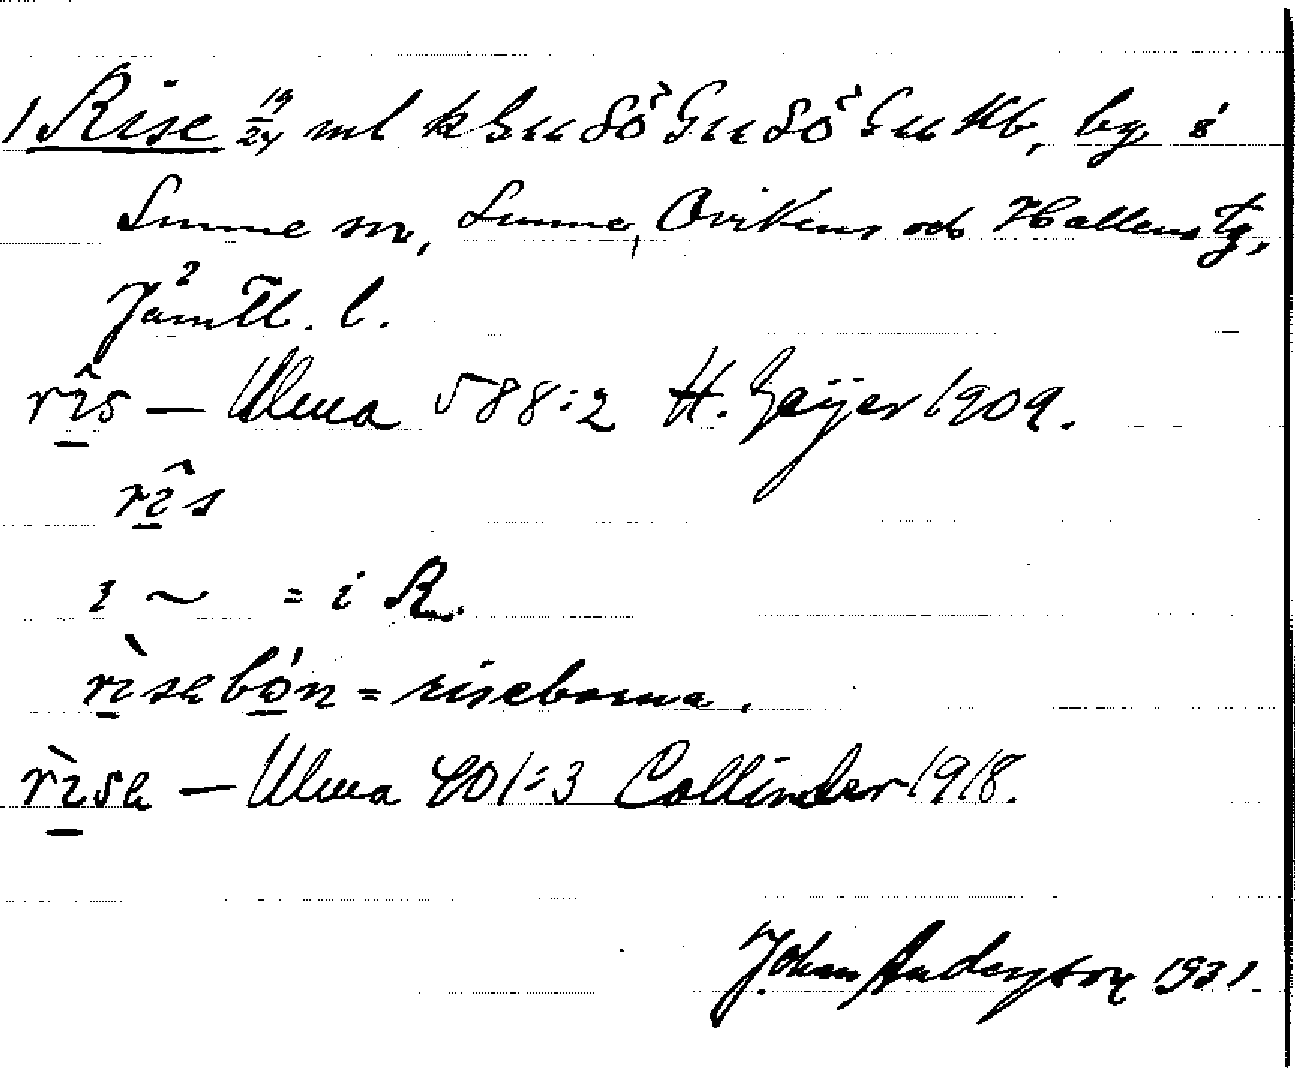 1 Rise 19/24 ml k Gu Sö Gu Sö Gu Kb, by i
Sunne sn, Sunne, Ovikens och Hallens tg,
Jämtl. l.
rîs — Ulma 588:2 H. Geijer 1909.
rîs
ı ~ = i R.
rìsabón = riseborna.
rìsa — Ulma 401:3 Collinder 1918.
Johan Anderson 1931.